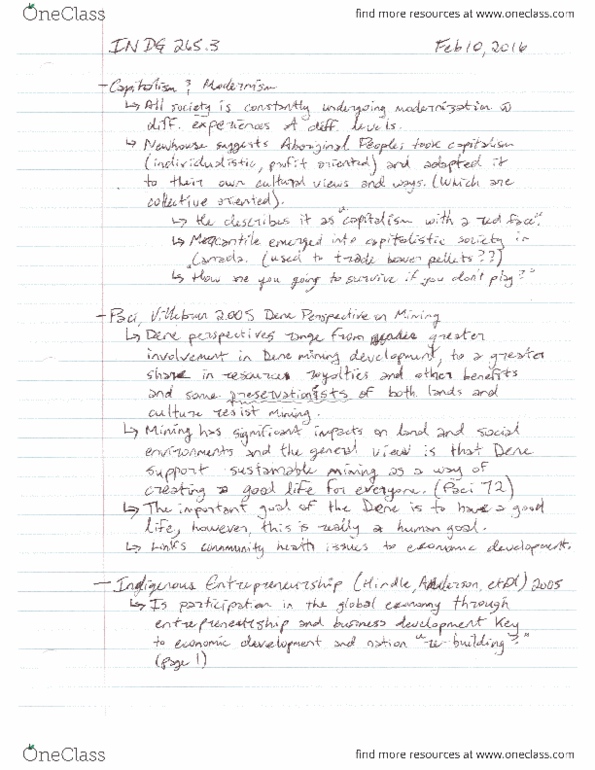 OneClass
find more resources at www.oneclass.com
INDG 265.3 Feb 10, 2016
- Capitalism & Modernism
↳ All society is constantly undergoing modernization @
diff. experiences & diff. levels.
↳ Newhouse suggests Aboriginal Peoples took capitalism
(individualistic, profit oriented) and adapted it
to their own cultural views and ways. (Which are
collective oriented).
↳ He describes it as "capitalism with a red face".
↳ Mercantile emerged into capitalistic society in
Canada. (used to trade beaver pellets??)
↳ "How are you going to survive if you don't play?"
- Paci, Villebrun 2005 Dene Perspective on Mining
↳ Dene perspectives range from greater
involvement in Dene mining development, to a greater
share in resources royalties and other benefits
and some preservationists of both lands and
culture resist mining.
↳ Mining has significant impacts on land and social
environments and the general view is that Dene
support sustainable mining as a way of
creating a good life for everyone. (Paci 72)
↳ The important goal of the Dene is to have a good
life, however, this is really a human goal.
↳ Links community health issues to economic development.
- Indigenous Entrepreneurship (Hindle, Anderson, et al) 2005
↳ Is participation in the global economy through
entrepreneurship and business development key
to economic development and nation "re-building?"
(page 1)
OneClass
find more resources at www.oneclass.com